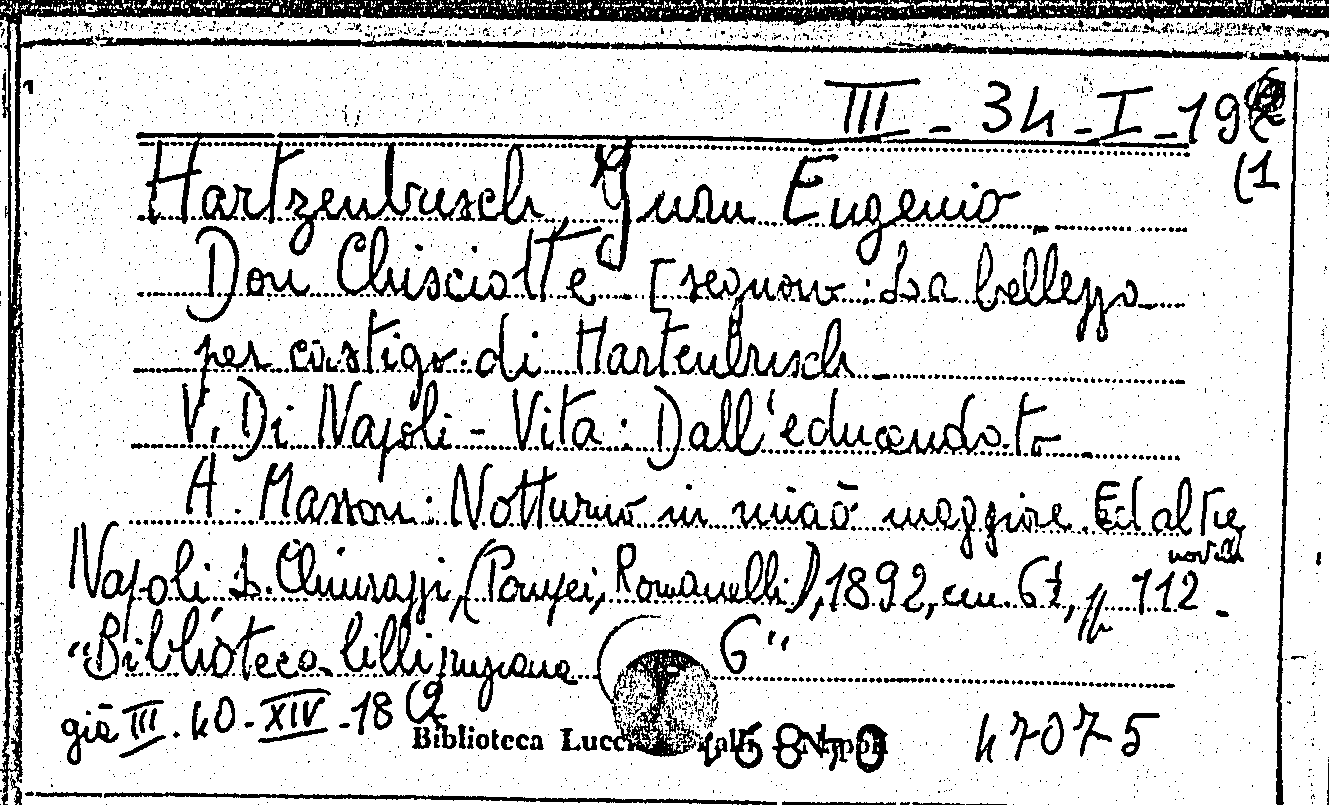 III - 34 - I - 19
(1
Hartzenbusch, Juan Eugenio
Don Chisciotte [seguono: La bellezza
per castigo di Hartenbusch
V. Di Napoli - Vita: Dall'educandato
A. Masson: Notturno in miao maggiore Ed altre
novelle
Napoli, L. Chiurazzi, (Pompei, Romanelli), 1892, cm. 6½, pp. 112.
"Biblioteca lillipuziana 6"
già III. 40 - XIV - 18 (2
Biblioteca Lucc alli - Napoli
47075